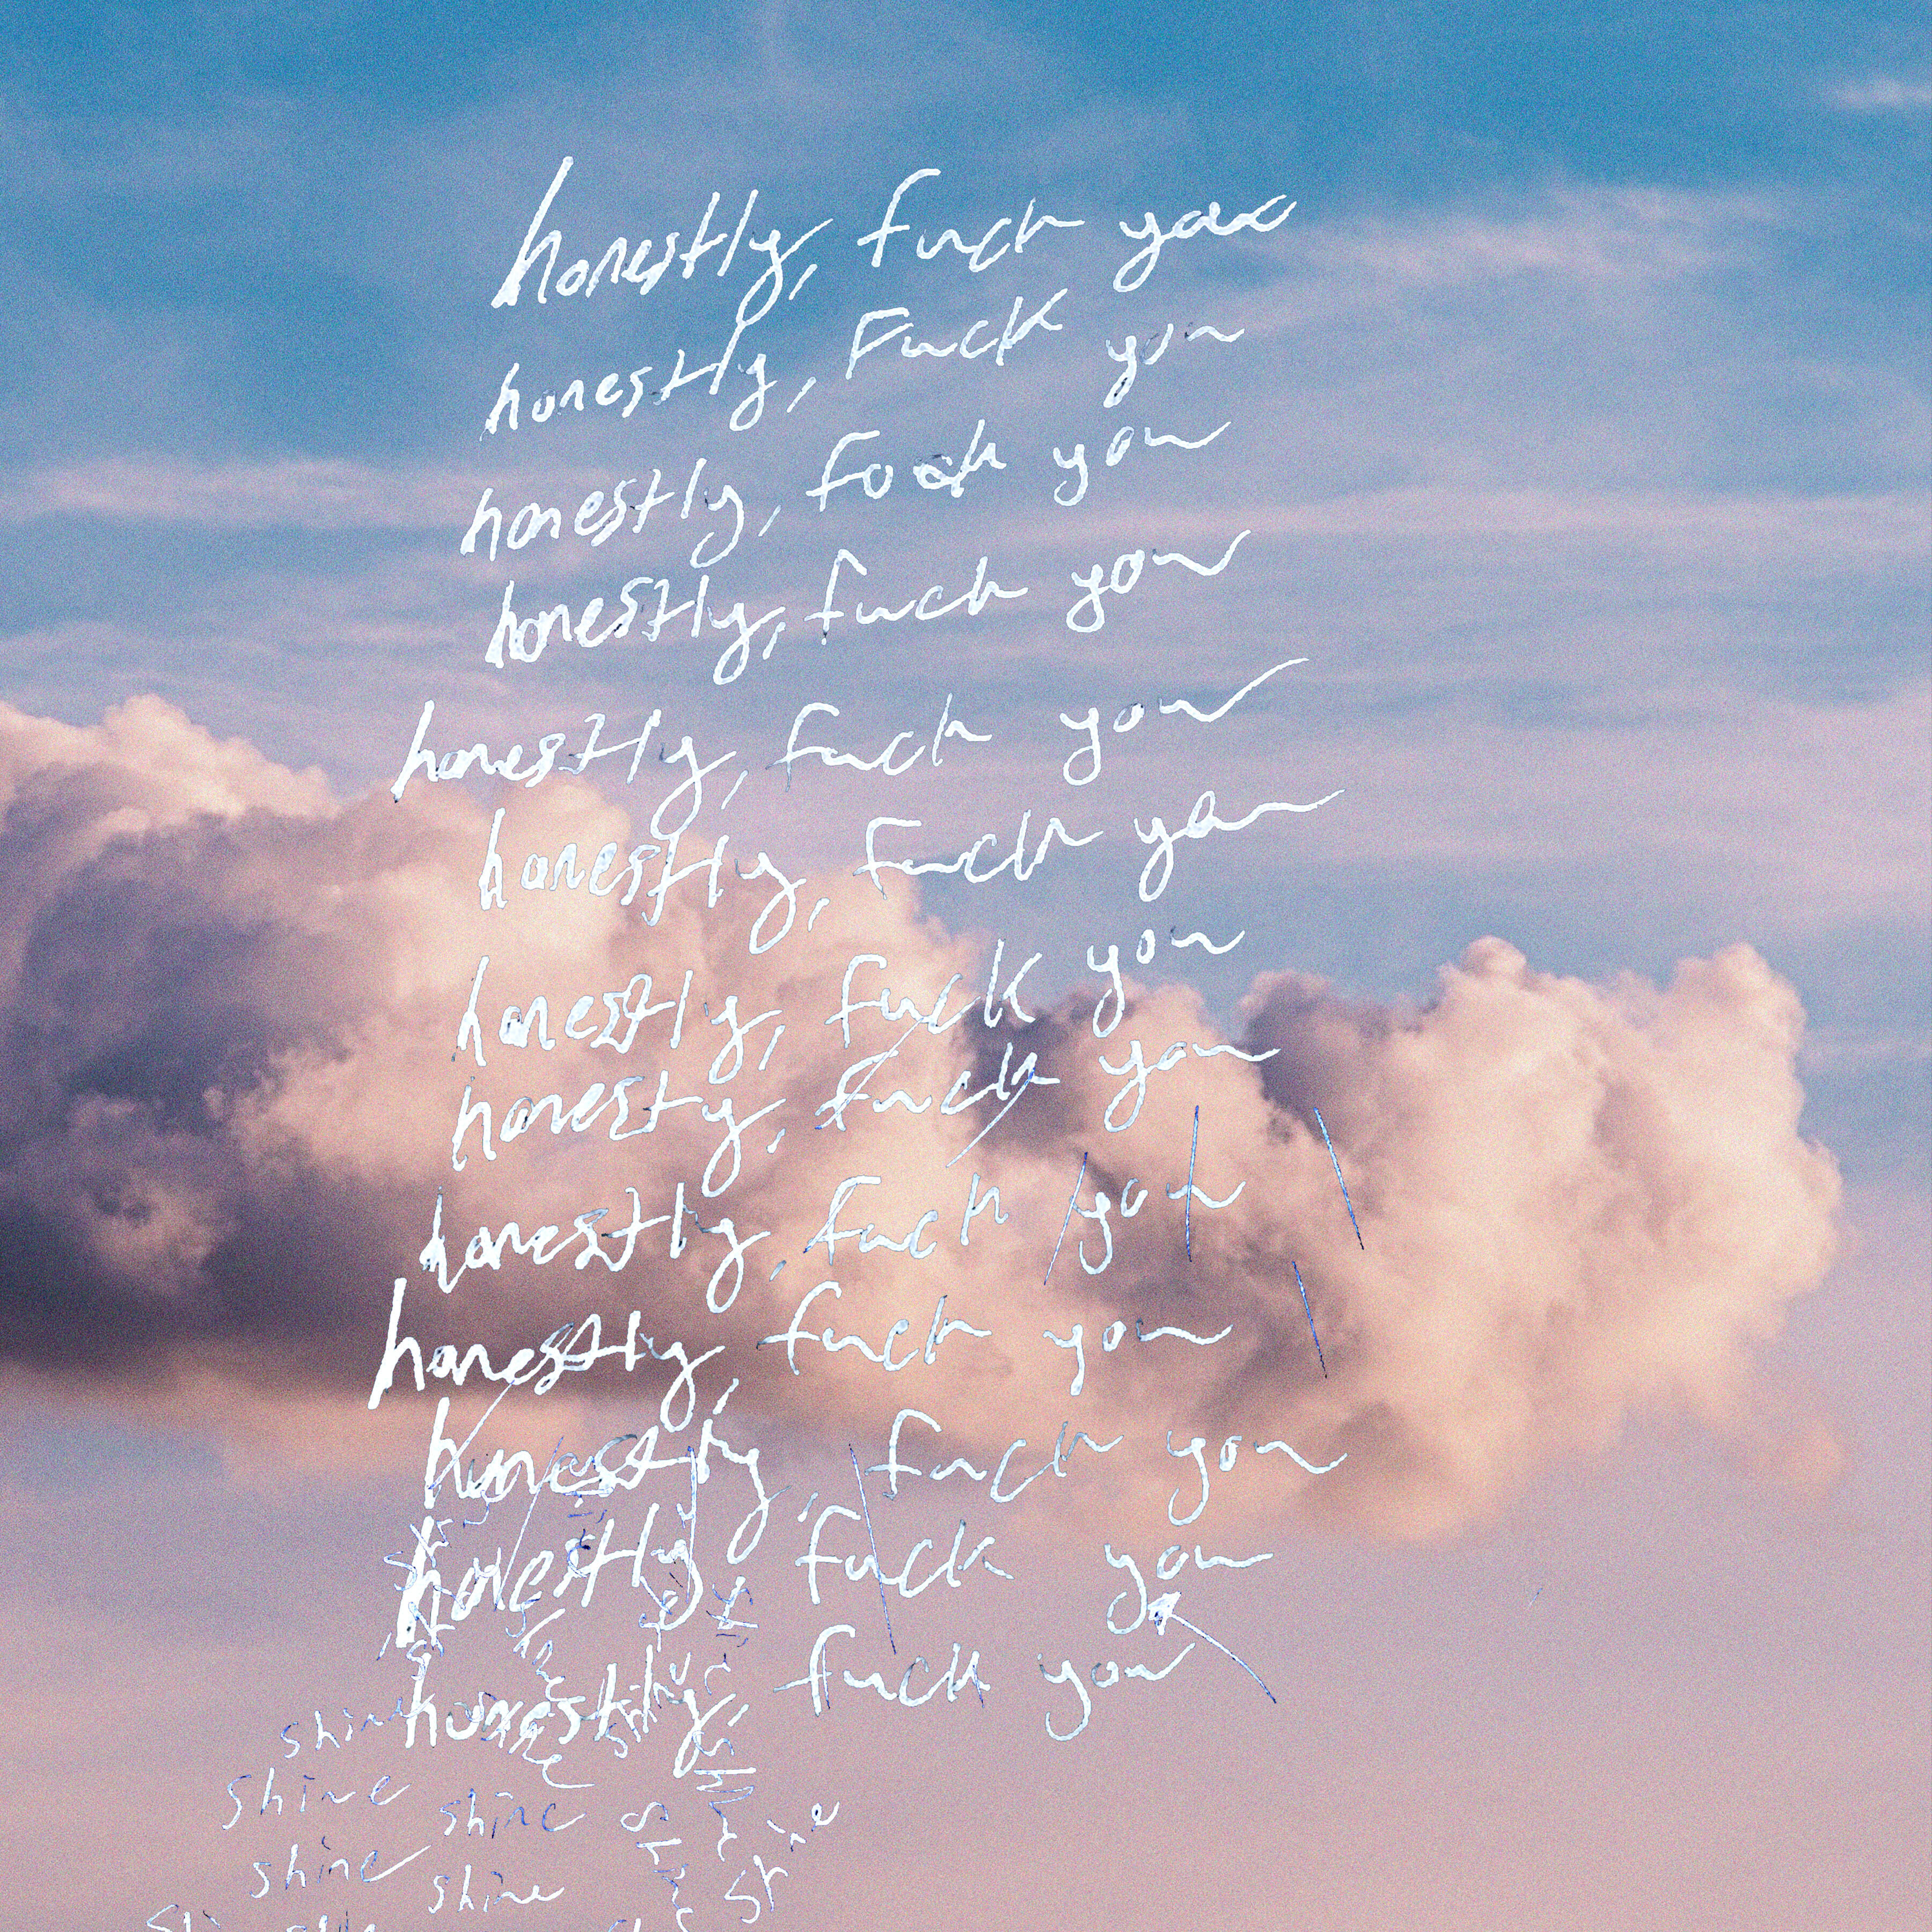 honestly, fuck you
honestly, Fuck you
honestly, fock you
honestly, fuck you
honestly, fuck you
honestly, fuck you
honestly, fuck you
honesty, fuck you
honestly, fuck you
honestly, fuck you
honestly, fuck you
honestly, fuck you
honestly, fuck you
shine
shine shine shine
shine shine shine